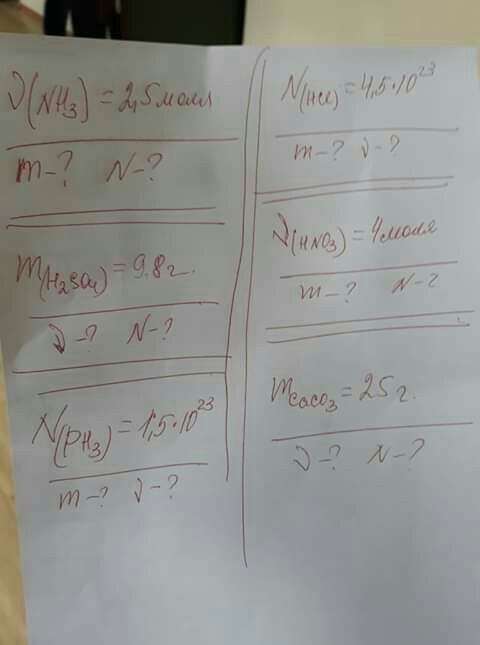 ν(NH₃) = 2,5 моля
m-? N-?
m(H₂SO₄) = 9.8 г.
ν-? N-?
N(PH₃) = 1,5·10²³
m-? ν-?
N(HCl) = 4,5·10²³
m-? ν-?
ν(HNO₃) = 4 моля
m-? N-?
mCaCO₃ = 25 г.
ν-? N-?